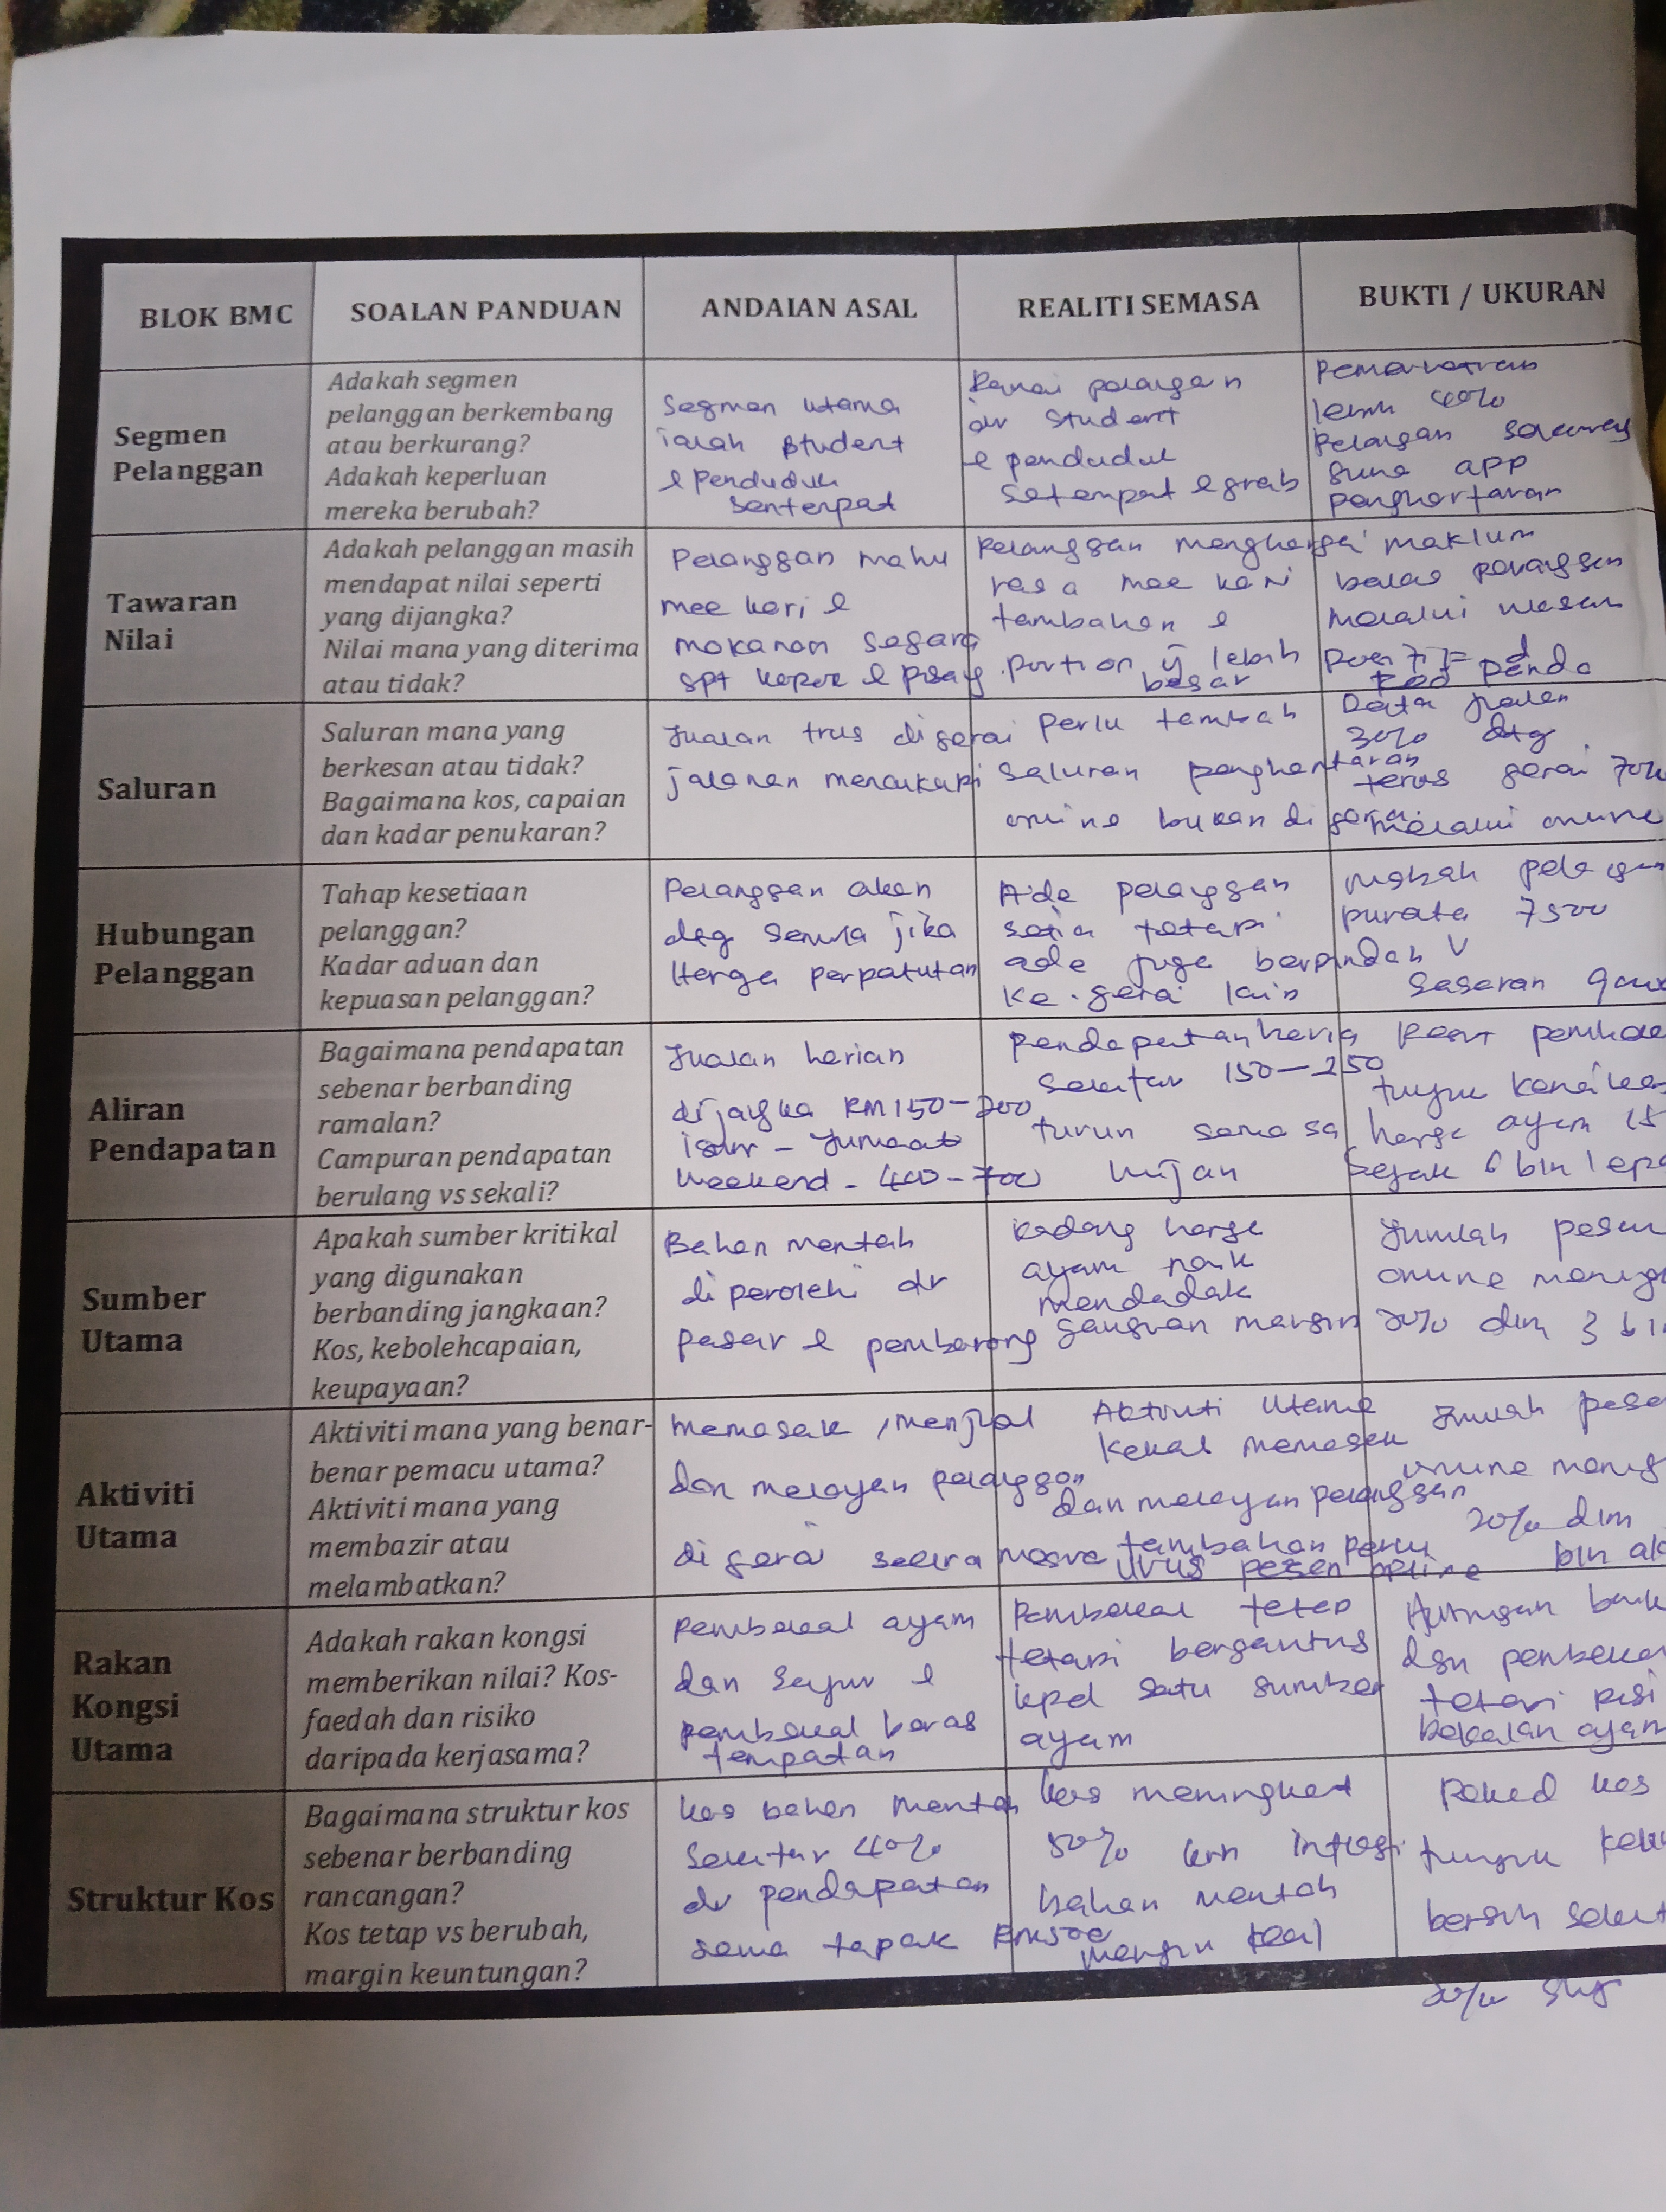 BLOK BMC
SOALAN PANDUAN
ANDAIAN ASAL
REALITI SEMASA
BUKTI / UKURAN
Segmen
Pelanggan
Adakah segmen
pelanggan berkembang
atau berkurang?
Adakah keperluan
mereka berubah?
Segmen utama
ialah student
& penduduk
sentempat
pelangan
dr student
& penduduk
setempat & grab
lebih 40%
Pelangan
guna app
penghantaran
Tawaran
Nilai
Adakah pelanggan masih
mendapat nilai seperti
yang dijangka?
Nilai mana yang diterima
atau tidak?
Pelanggan mahu
mee kari &
makanan segara
spt &
Pelanggan menghargai
rasa mee kari
tambahan &
portion yg lebih
besar
maklum
balas pelanggan
melalui
panda
Saluran
Saluran mana yang
berkesan atau tidak?
Bagaimana kos, capaian
dan kadar penukaran?
Jualan trus digerai
jalanan mencukupi
Perlu tambah
saluran penghantaran
online bukan di gerai
Data jualan
30% dtg
terus gerai 70%
melalui online
Hubungan
Pelanggan
Tahap kesetiaan
pelanggan?
Kadar aduan dan
kepuasan pelanggan?
Pelanggan akan
dtg semula jika
Harga perpatutan
Ada pelanggan
setia tetapi
ada juga berpindah
ke gerai lain
purata
sasaran
Aliran
Pendapatan
Bagaimana pendapatan
sebenar berbanding
ramalan?
Campuran pendapatan
berulang vs sekali?
Jualan harian
dijangka RM150-200
isnin - Jumaat
weekend - 400-700
Pendapatan
sekitar 150-250
turun semasa
hujan
harga ayam
sejak 6 bln
Sumber
Utama
Apakah sumber kritikal
yang digunakan
berbanding jangkaan?
Kos, kebolehcapaian,
keupayaan?
Bahan mentah
diperolehi dr
pasar & pemborong
kadang harga
ayam naik
mendadak
margin
Jumlah
online
20% dlm 3
Aktiviti
Utama
Aktiviti mana yang benar-
benar pemacu utama?
Aktiviti mana yang
membazir atau
melambatkan?
memasak, menjual
dan melayan pelanggan
di gerai
Aktiviti utama
kekal memasak
dan melayan pelanggan
tambahan perlu
urus pesen online
Jumlah
online
20% dlm
bln
Rakan
Kongsi
Utama
Adakah rakan kongsi
memberikan nilai? Kos-
faedah dan risiko
daripada kerjasama?
Pembekal ayam
dan sayur &
pembekal beras
tempatan
Pembekal tetap
tetapi bergantung
kpd satu sumber
ayam
baik
dgn
tetapi
bekalan ayam
Struktur Kos
Bagaimana struktur kos
sebenar berbanding
rancangan?
Kos tetap vs berubah,
margin keuntungan?
kos bahan mentah
sekitar 40%
dr pendapatan
sewa tapak RM500
kos meningkat
50% krn inflasi
bahan mentah
margin kecil
Rekod kos
bersih
20% shj